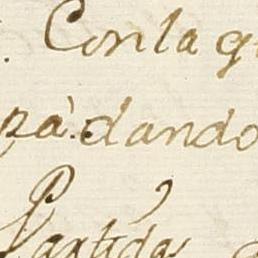 . Con la q
zà dando
Partida